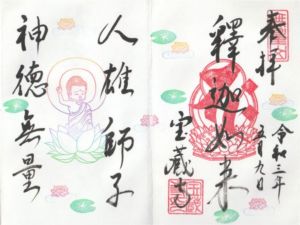 奉拝
令和三年
五月九日
釋迦如来
宝蔵寺
人雄師子
神徳無量